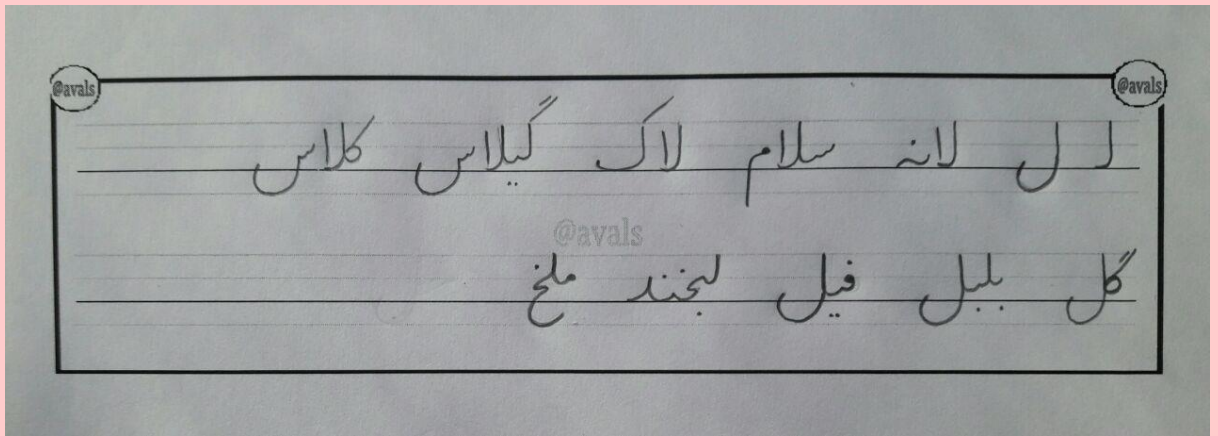 @avals @avals
لـ ل لانه سلام لاک گیلاس کلاس
@avals
گل بلبل فیل لبخند ملخ